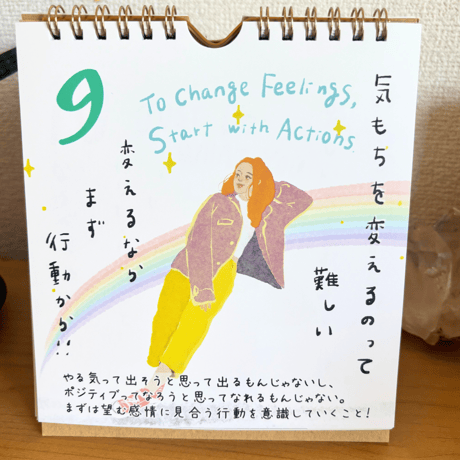 9
To Change Feelings,
Start with Actions
気もちを変えるのって
難しい
変えるなら
まず
行動から!!
やる気って出そうと思って出るもんじゃないし、
ポジティブってなろうと思ってなれるもんじゃない。
まずは望む感情に見合う行動を意識していくこと!